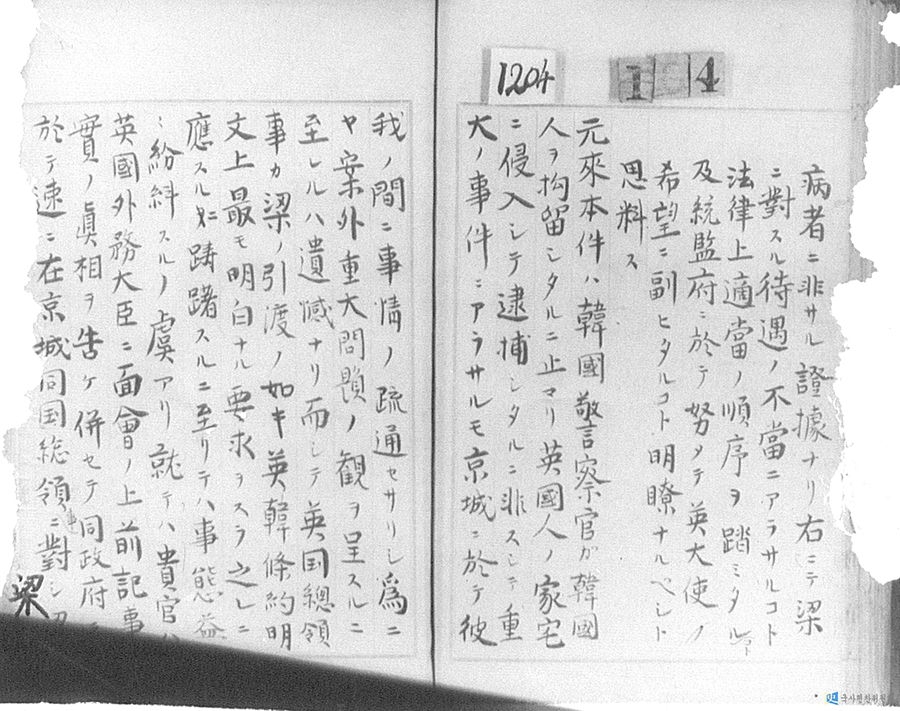 1204
1 4
病者ニ非サル證據ナリ右ニテ梁
ニ對スル待遇ノ不當ニアラサルコト
法律上適當ノ順序ヲ踏ミタル
及統監府ニ於テ努メテ英大使ノ
希望ニ副ヒタルコト明瞭ナルベシト
思料ス
元來本件ハ韓國警察官ガ韓國
人ヲ拘留シタルニ止マリ英國人ノ家宅
ニ侵入シテ逮捕シタルニ非スシテ重
大ノ事件ニアラサルモ京城ニ於テ彼
我ノ間ニ事情ノ疏通セサリシ爲ニ
ヤ案外重大問題ノ観ヲ呈スルニ
至レルハ遺憾ナリ而シテ英国總領
事カ梁ノ引渡ノ如キ英韓條約明
文上最モ明白ナル要求ヲスラ之レニ
應スルニ躊躇スルニ至リテハ事態益
ニ紛糾スルノ虞アリ就テハ貴官ハ
英國外務大臣ニ面會ノ上前記事
實ノ眞相ヲ告ケ併セテ同政府ニ
於テ速ニ在京城同国総領事ニ對シ
梁
국사편찬위원회